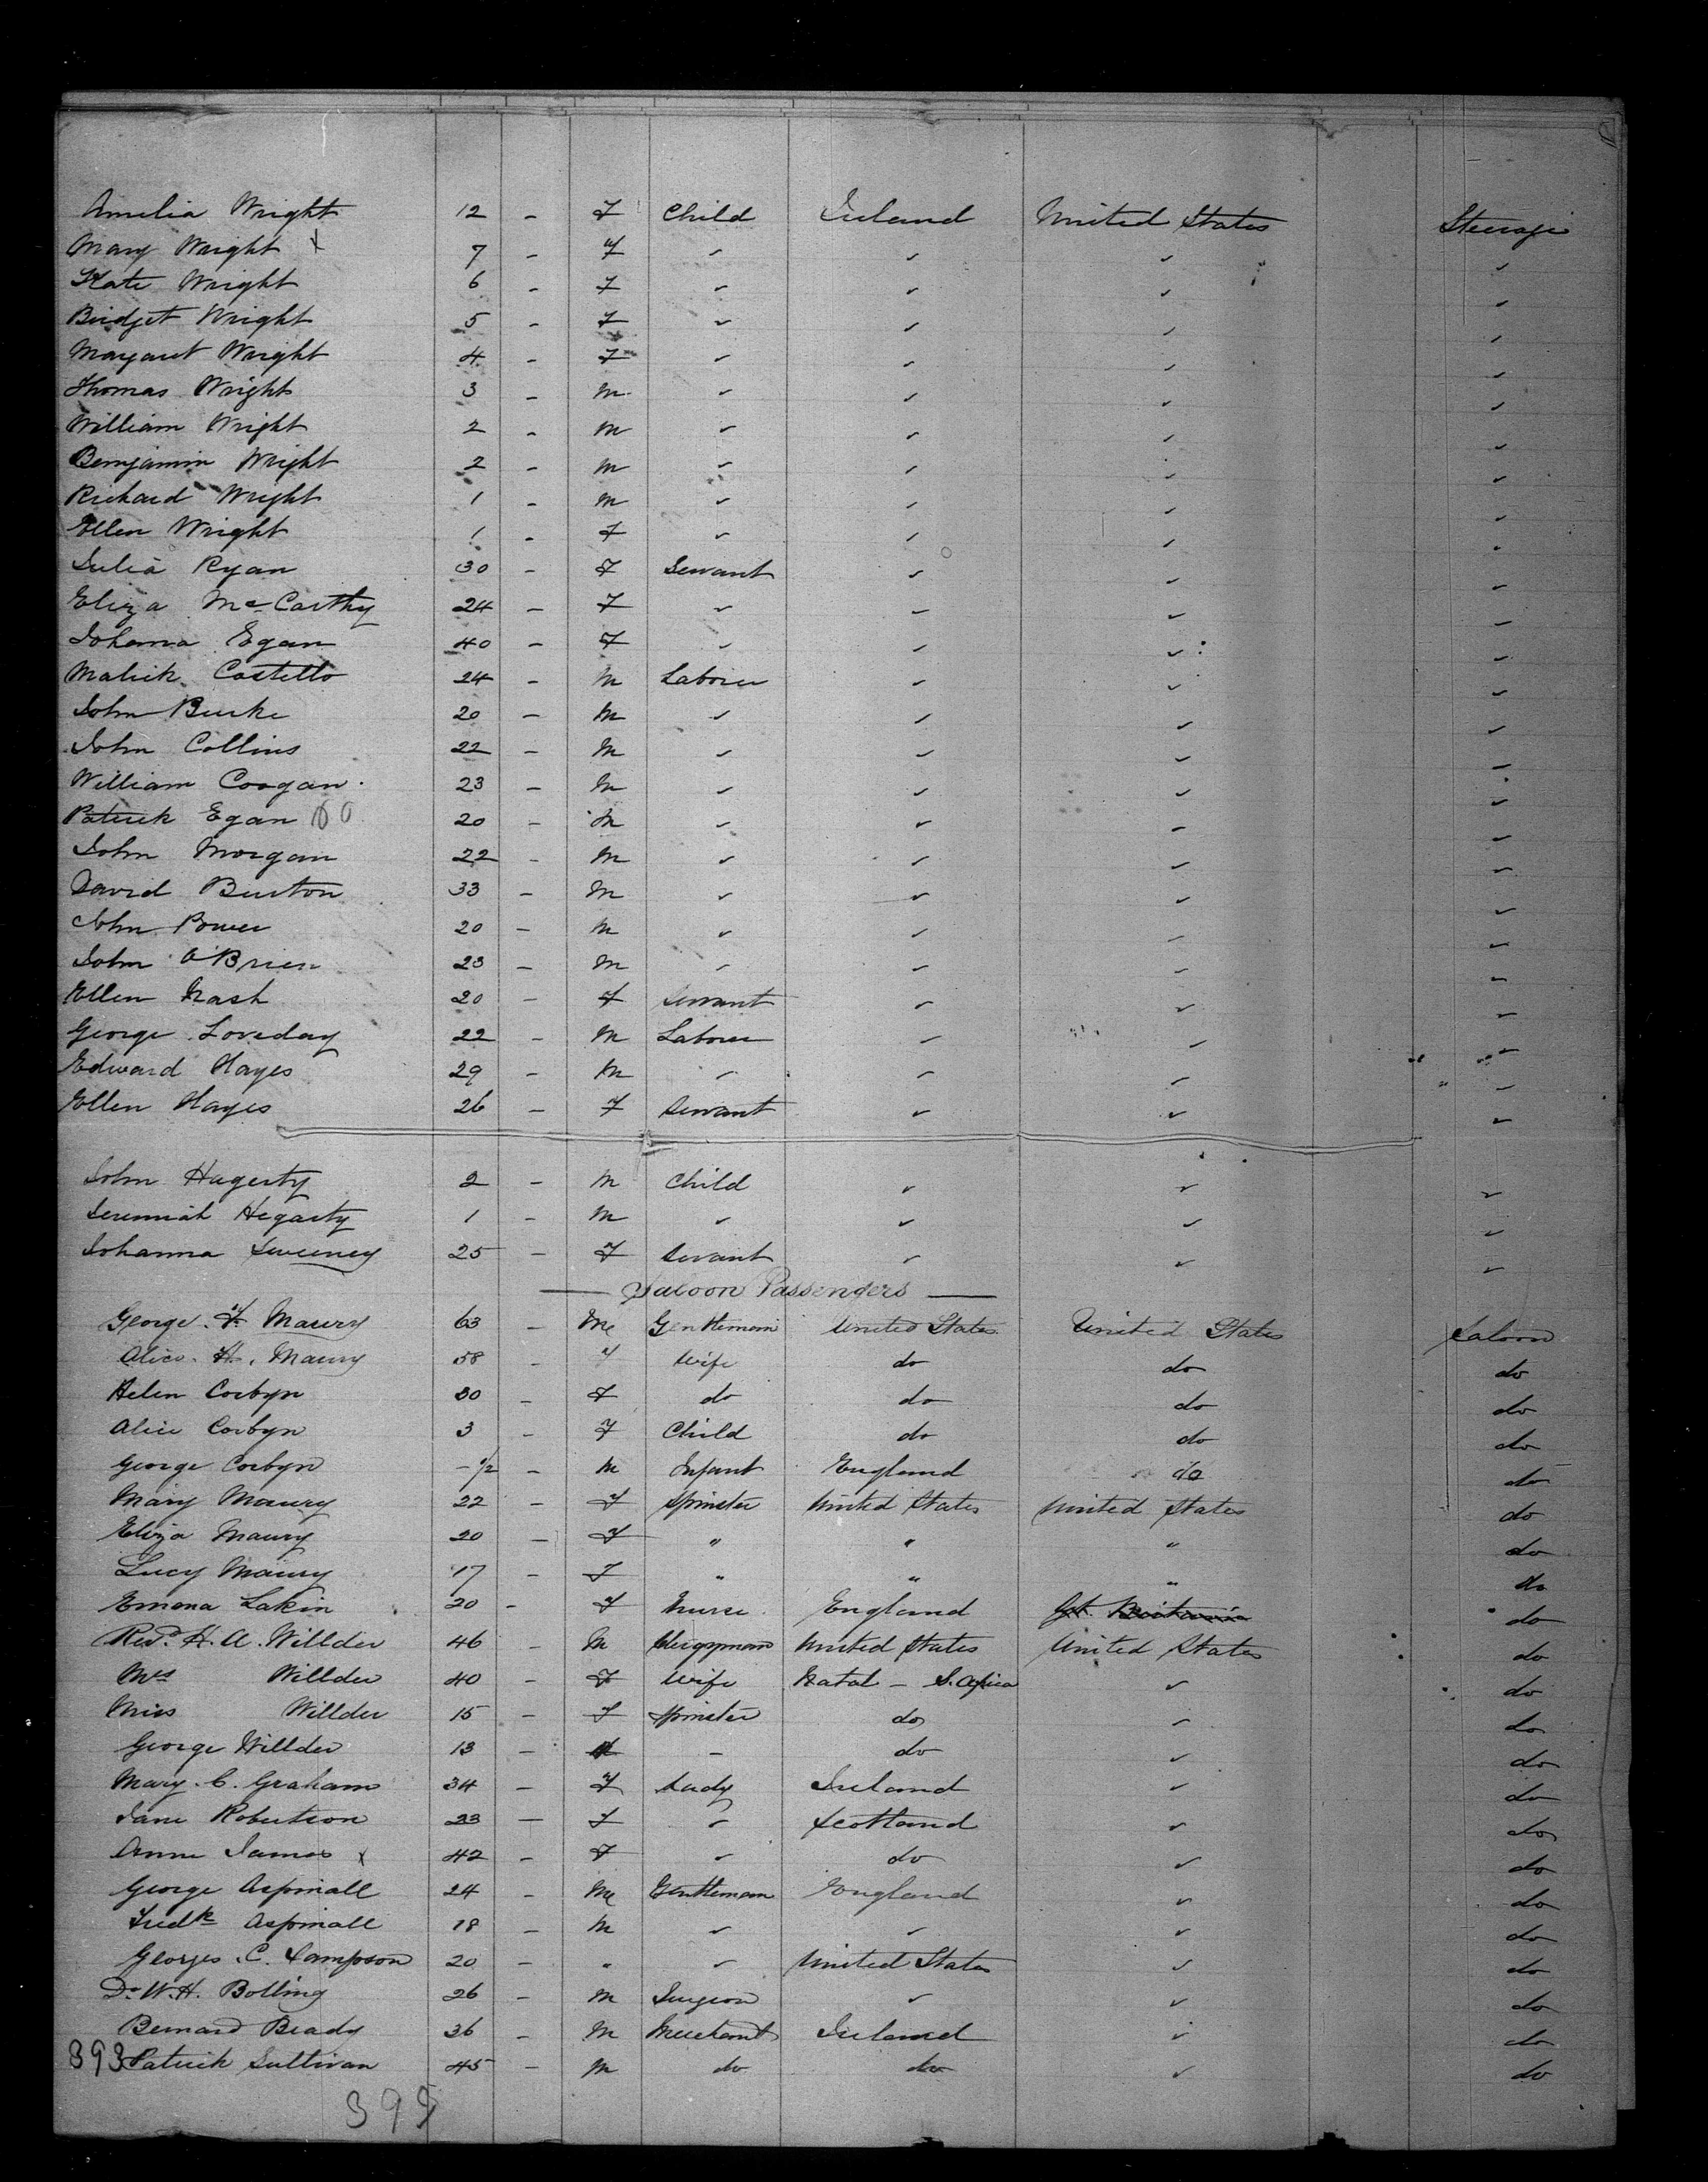 Amelia Wright 12 - F Child Ireland United States Steerage
Mary Wright x 7 - F " " " "
Kate Wright 6 - F " " " "
Bridget Wright 5 - F " " " "
Margaret Wright 4 - F " " " "
Thomas Wright 3 - M " " " "
William Wright 2 - M " " " "
Benjamin Wright 2 - M " " " "
Richard Wright 1 - M " " " "
Ellen Wright 1 - F " " " "
Julia Ryan 30 - F Servant " " "
Eliza McCarthy 24 - F " " " "
Johanna Egan 40 - F " " " "
Costello 24 - M Laborer " " "
John Burke 20 - M " " " "
John Collins 22 - M " " " "
William Coogan 23 - M " " " "
Patrick Egan 20 - M " " " "
John Morgan 22 - M " " " "
David Burton 33 - M " " " "
John Power 20 - M " " " "
John O'Brien 23 - M " " " "
Ellen Nash 20 - F Servant " " "
George Loveday 22 - M Laborer " " "
Edward Hayes 29 - M " " " "
Ellen Hayes 26 - F Servant " " "
John Hagerty 2 - M Child " " "
Jeremiah Hegarty 1 - M " " " "
Johanna Sweeney 25 - F Servant " " "
Saloon Passengers
George F. Maury 63 - M Gentleman United States United States Saloon
Alice H. Maury 58 - F Wife do do do
Helen Corbyn 30 - F do do do do
Alice Corbyn 3 - F Child do do do
George Corbyn - 1/2 - M Infant England do do
Mary Maury 22 - F Spinster United States United States do
Eliza Maury 20 - F " " " do
Lucy Maury 17 - F " " " do
Emma Lakin 20 - F Nurse England Gt. Britain do
Revd. H. A. Willder 46 - M Clergyman United States United States do
Mrs Willder 40 - F Wife Natal - S. Africa " do
Miss Willder 15 - F Spinster do " do
George Willder 13 - M - do " do
Mary C. Graham 34 - F Lady Ireland " do
Jane Robertson 23 - F " Scotland " do
Anne James x 42 - F " do " do
George Aspinall 24 - M Gentleman England " do
Fredk Aspinall 18 - M " " " do
Georges C. Sampson 20 - " " United States " do
Dr W. H. Bolling 26 - M Surgeon " " do
Bernard Brady 36 - M Merchant Ireland " do
393 Patrick Sullivan 45 - M do do " do
395